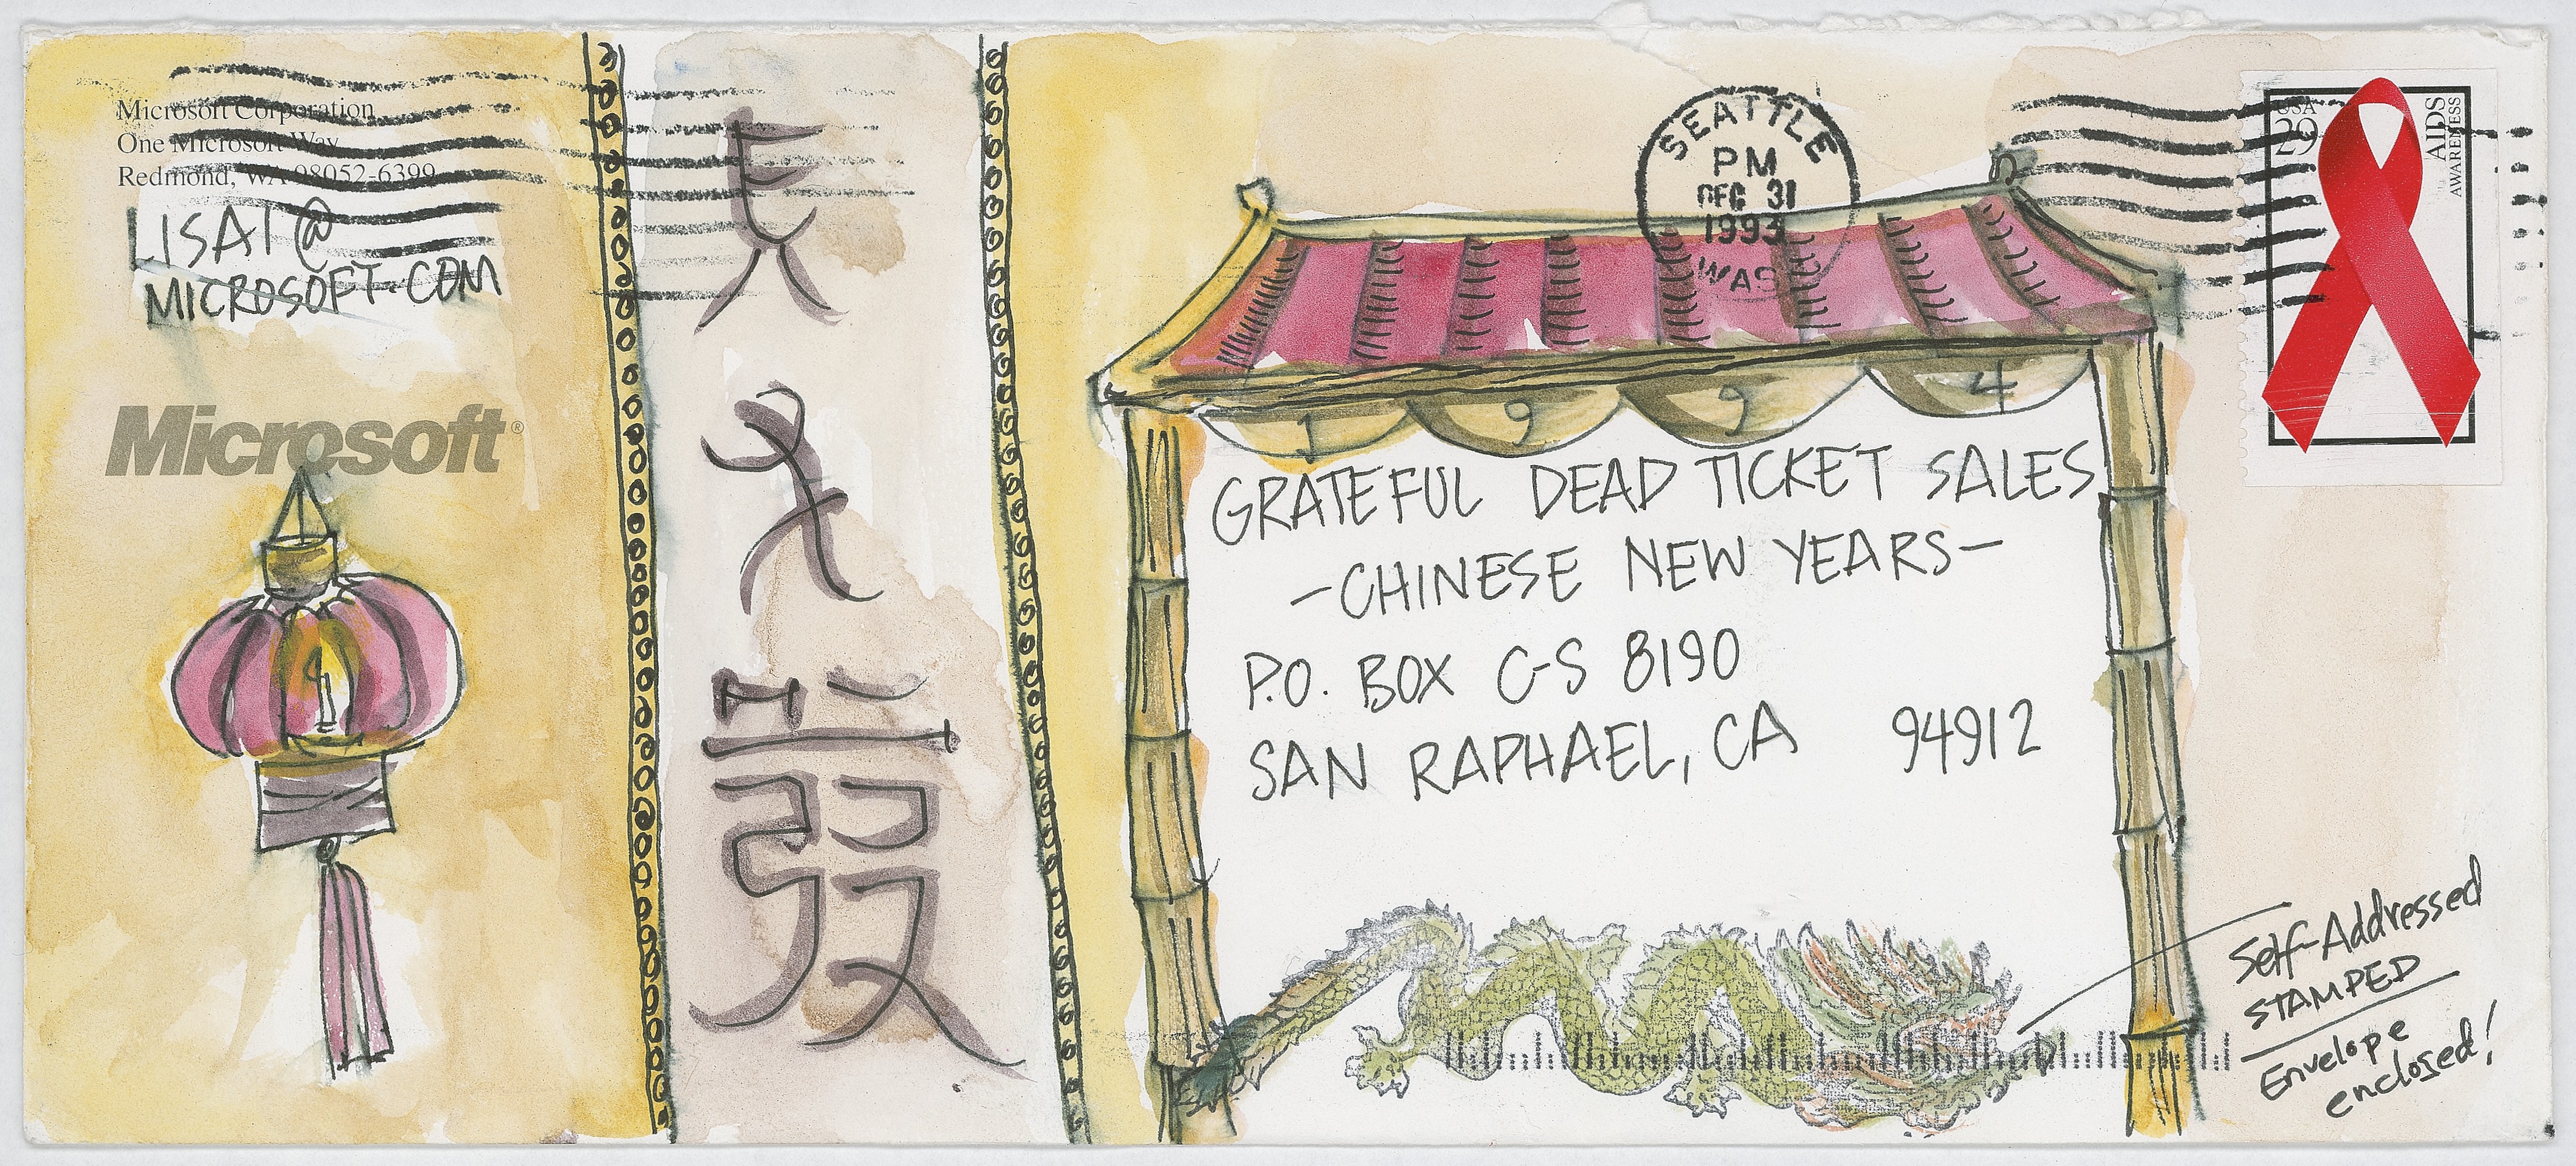 Microsoft Corporation
One Microsoft Way
Redmond, WA 98052-6399
LISAI @
MICROSOFT.COM
Microsoft®
發
SEATTLE
PM
DEC 31
1993
WAS
USA
29
AIDS
AWARENESS
1 9 9 4
GRATEFUL DEAD TICKET SALES
-CHINESE NEW YEARS-
P.O. BOX C-S 8190
SAN RAPHAEL, CA 94912
Self-Addressed
STAMPED
Envelope
enclosed!